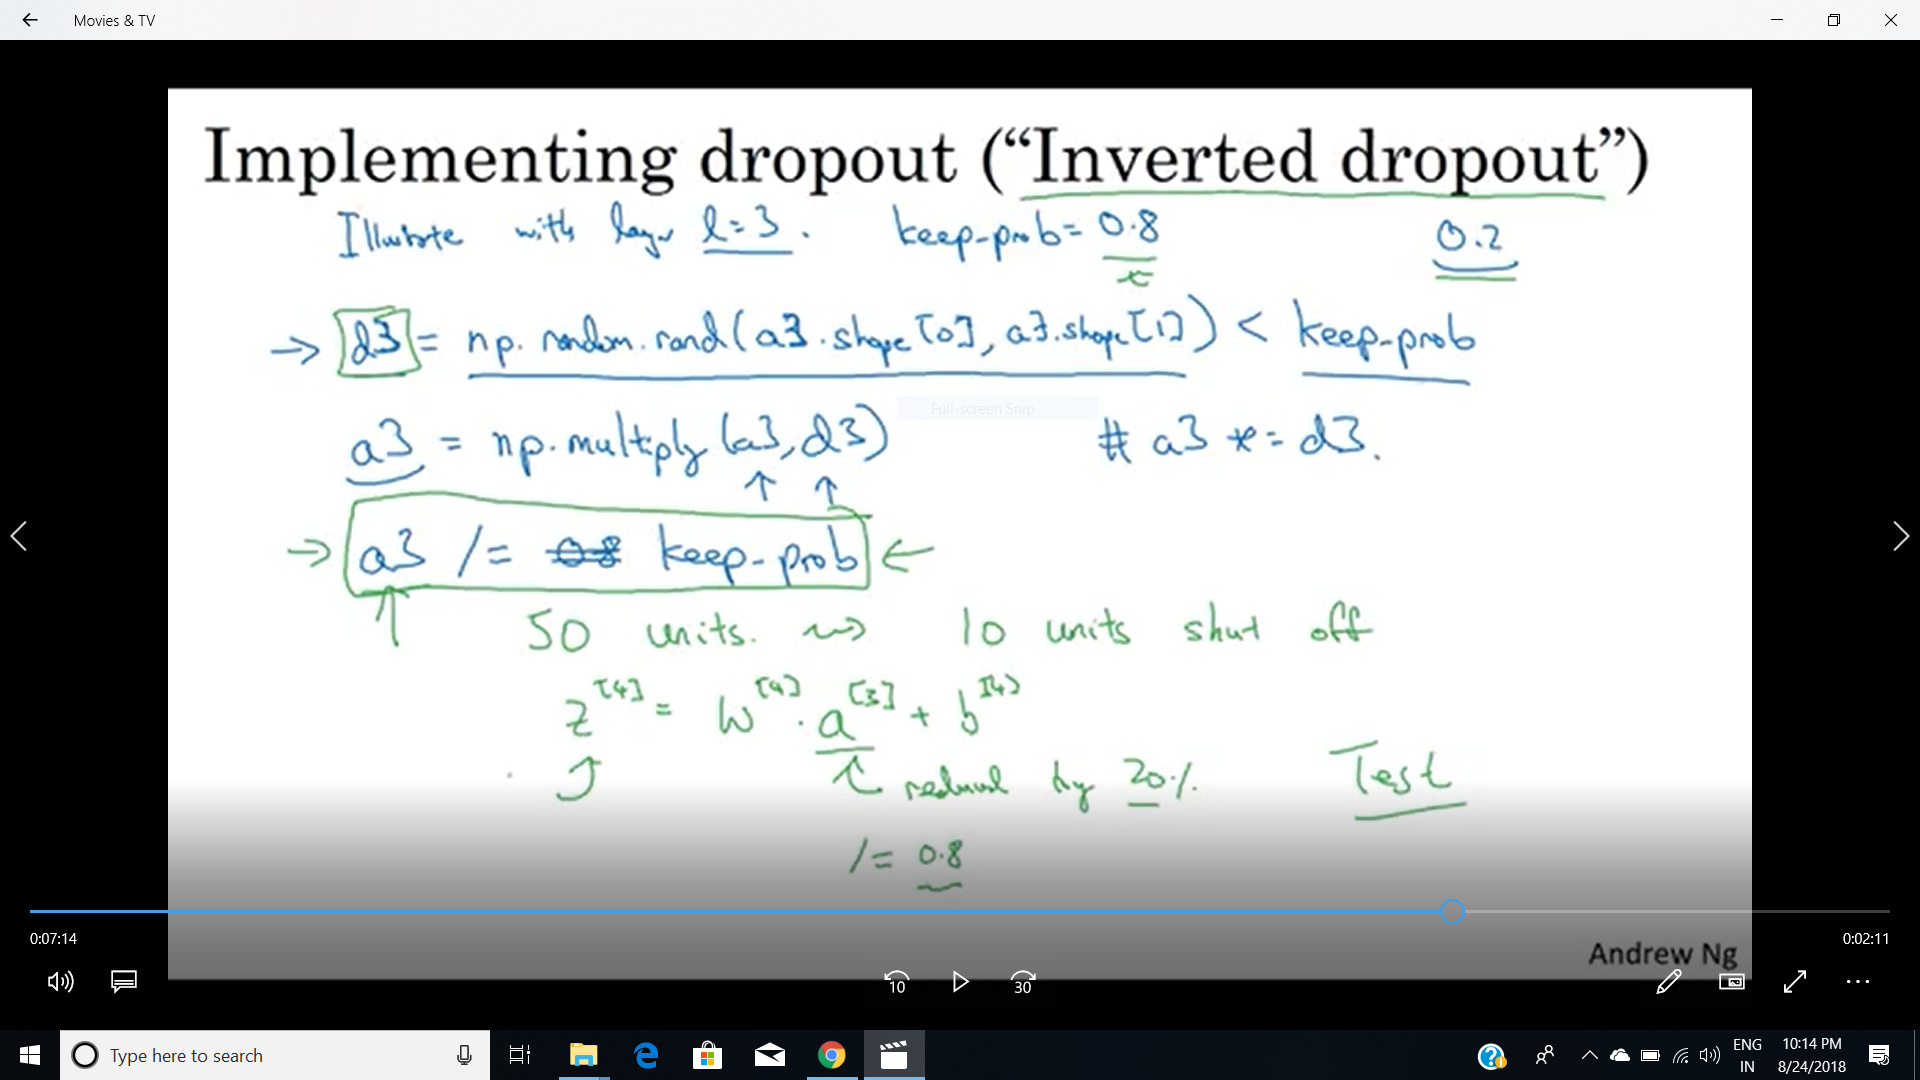 Movies & TV
Implementing dropout (“Inverted dropout”)
Illustrate with layer l=3. keep-prob = 0.8 0.2
→ d3 = np.random.rand(a3.shape[0], a3.shape[1]) < keep-prob
Full-screen Snip
a3 = np.multiply(a3, d3) # a3 *= d3.
→ a3 /= 0.8 keep-prob ←
50 units. ⇝ 10 units shut off
z[4] = W[4] · a[3] + b[4]
reduced by 20%
Test
/= 0.8
0:07:14 0:02:11
Andrew Ng
10 30
Type here to search
ENG
IN
10:14 PM
8/24/2018